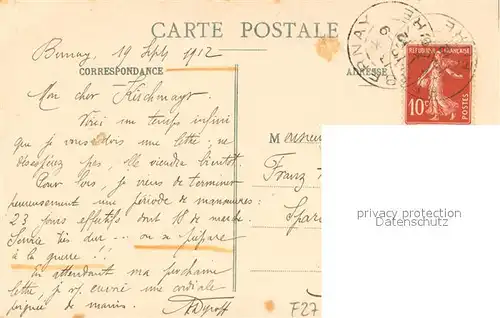 CARTE POSTALE
Bernay, 19 Septs 1912
CORRESPONDANCE
ADRESSE
BERNAY
REPUBLIQUE FRANÇAISE
10c
POSTES
Mon cher Kischmayr.
Voici un temps infini
que je vous dois une lettre; ne
désespérez pas, elle viendra bientôt.
Pour lors, je viens de terminer
heureusement une période de manœuvres:
23 jours effectifs dont 18 de marche
Service très dur... on se prépare
à la guerre!!
En attendant ma prochaine
lettre, je vs envoie une cordiale
poignée de mains.
Monsieur
Franz
Spar
privacy protection
Datenschutz
F27